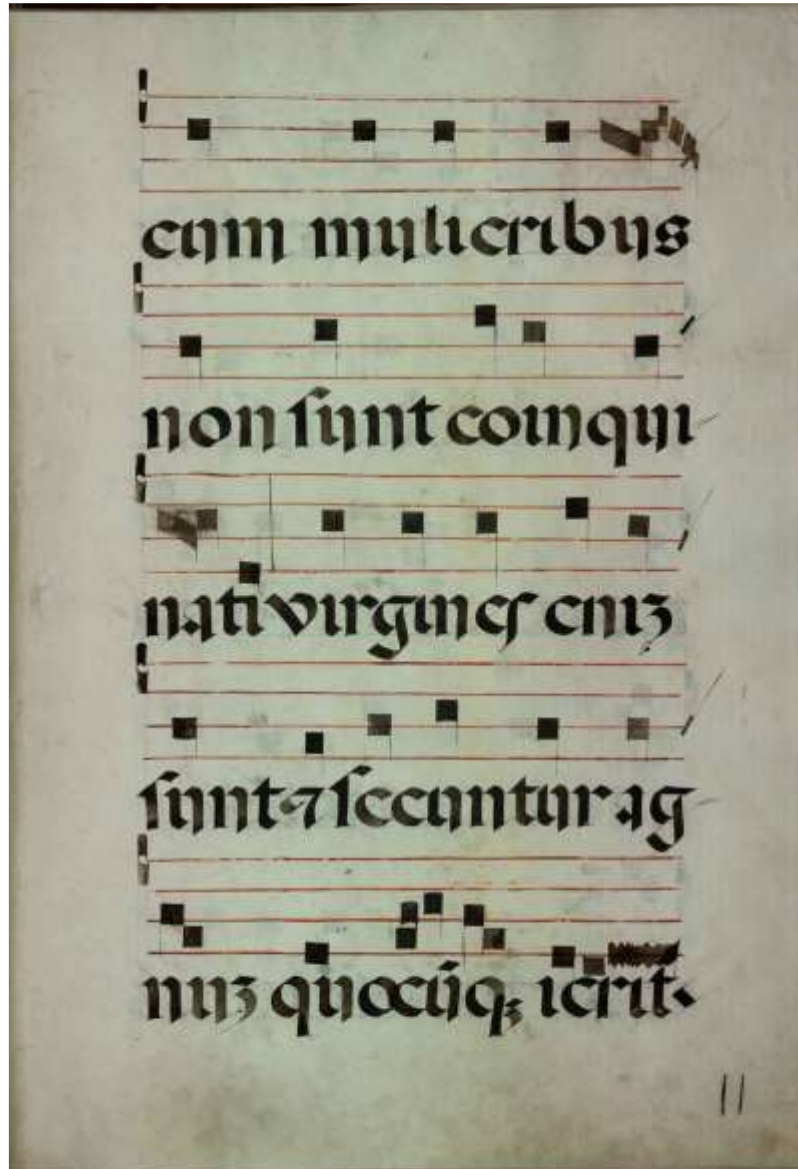 cum mulieribus
non sunt coinqui
nati virgines eniʒ
sunt ⁊ secuntur ag
nuʒ quocūqꝫ ierit.
11